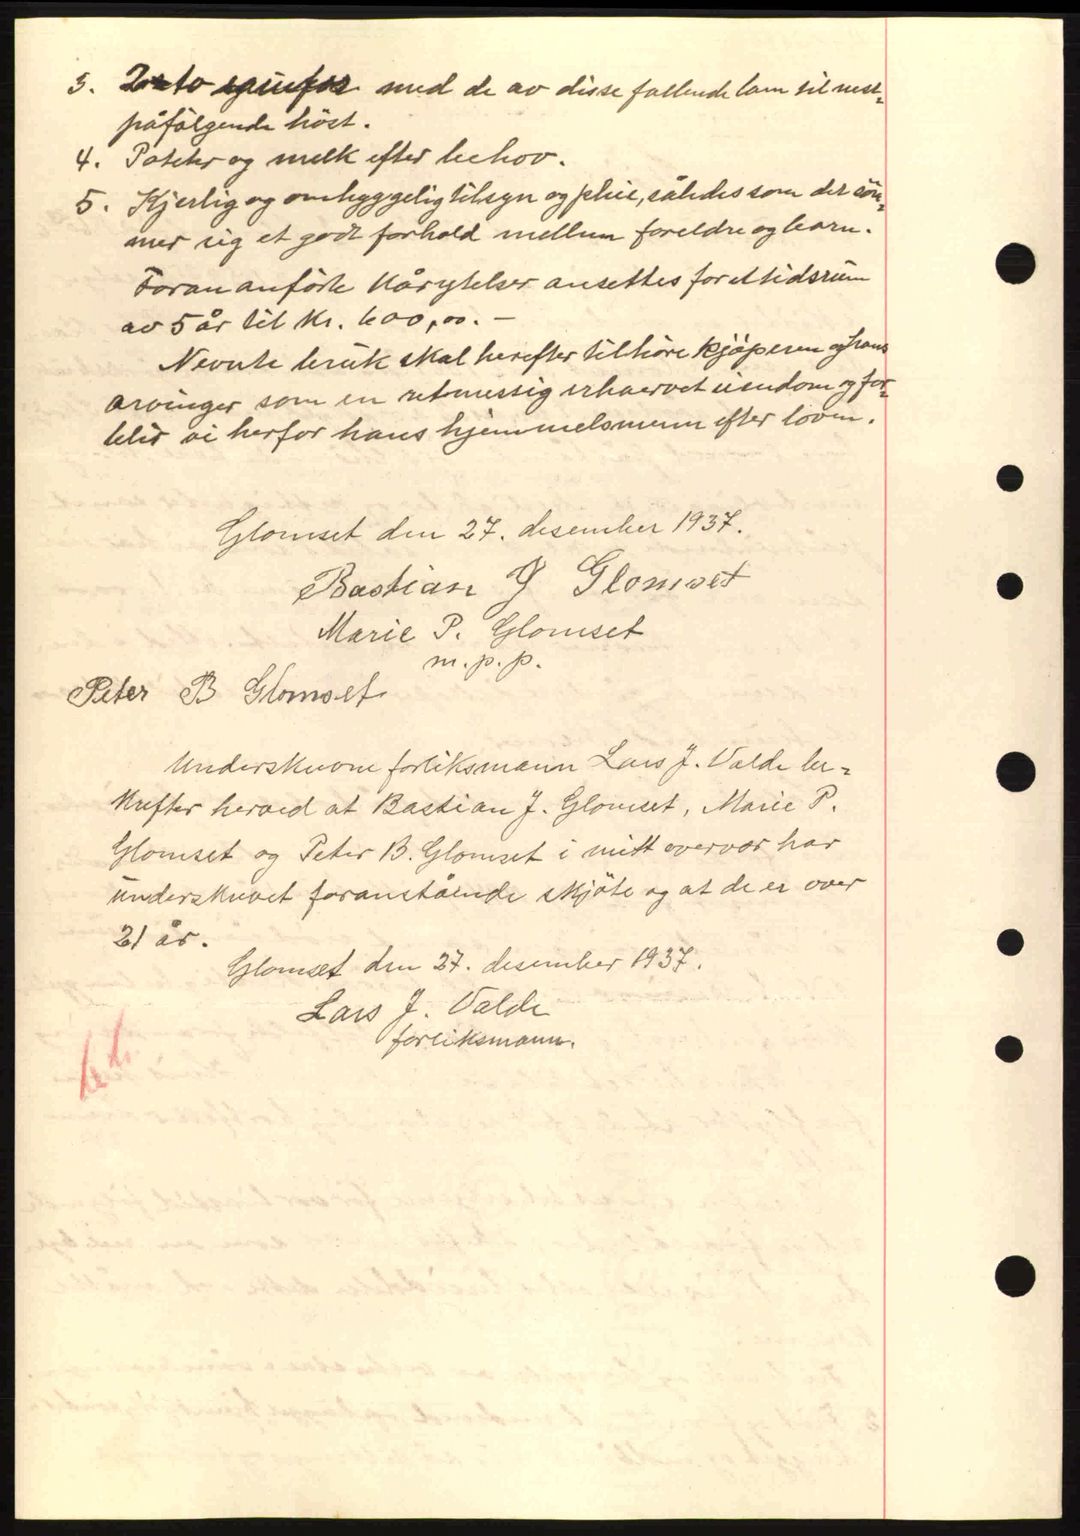 3. 2-to vinterfør med de av disse fallende lam til nest-
påfølgende høst.
4. Poteter og melk efter behov.
5. Kjerlig og omhyggelig tilsyn og pleie, således som det søm-
mer sig et godt forhold mellem foreldre og barn.
Foran anførte kårytelser ansettes for et tidsrum
av 5 år til kr. 600,00. —
Nevnte bruk skal herefter tilhøre kjøperen og hans
arvinger som en retmessig erhvervet eiendom og for-
blir vi herfor hans hjemmelsmenn efter loven.
Glomset den 27. desember 1937.
Bastian J Glomset
Marie P. Glomset
m. p. p.
Peter B Glomset
Underskrevne forliksmann Lars J. Valde be-
krefter herved at Bastian J. Glomset, Marie P.
Glomset og Peter B. Glomset i mitt overvær har
underskrevet foranstående skjøte og at de er over
21 år.
Glomset den 27. desember 1937.
Lars J. Valde
forliksmann.